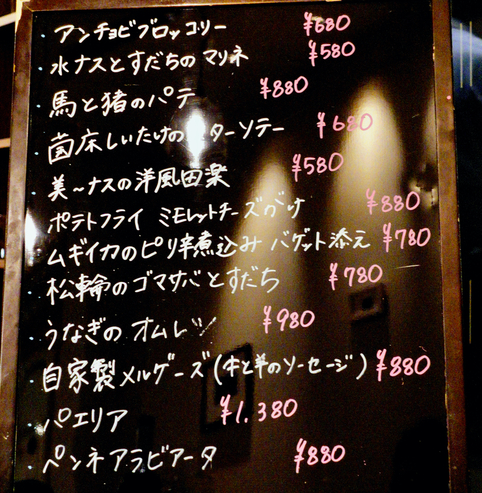 ・アンチョビブロッコリー ¥680
・水ナスとすだちのマリネ ¥580
・馬と猪のパテ ¥880
・菌床しいたけの ターソテー ¥680
・美~ナスの洋風田楽 ¥580
・ポテトフライ ミモレットチーズがけ ¥880
・ムギイカのピリ辛煮込み バゲット添え ¥780
・松輪のゴマサバとすだち ¥780
・うなぎの オムレツ ¥980
・自家製メルゲーズ(牛と羊のソーセージ) ¥880
・パエリア ¥1.380
・ペンネアラビアータ ¥880